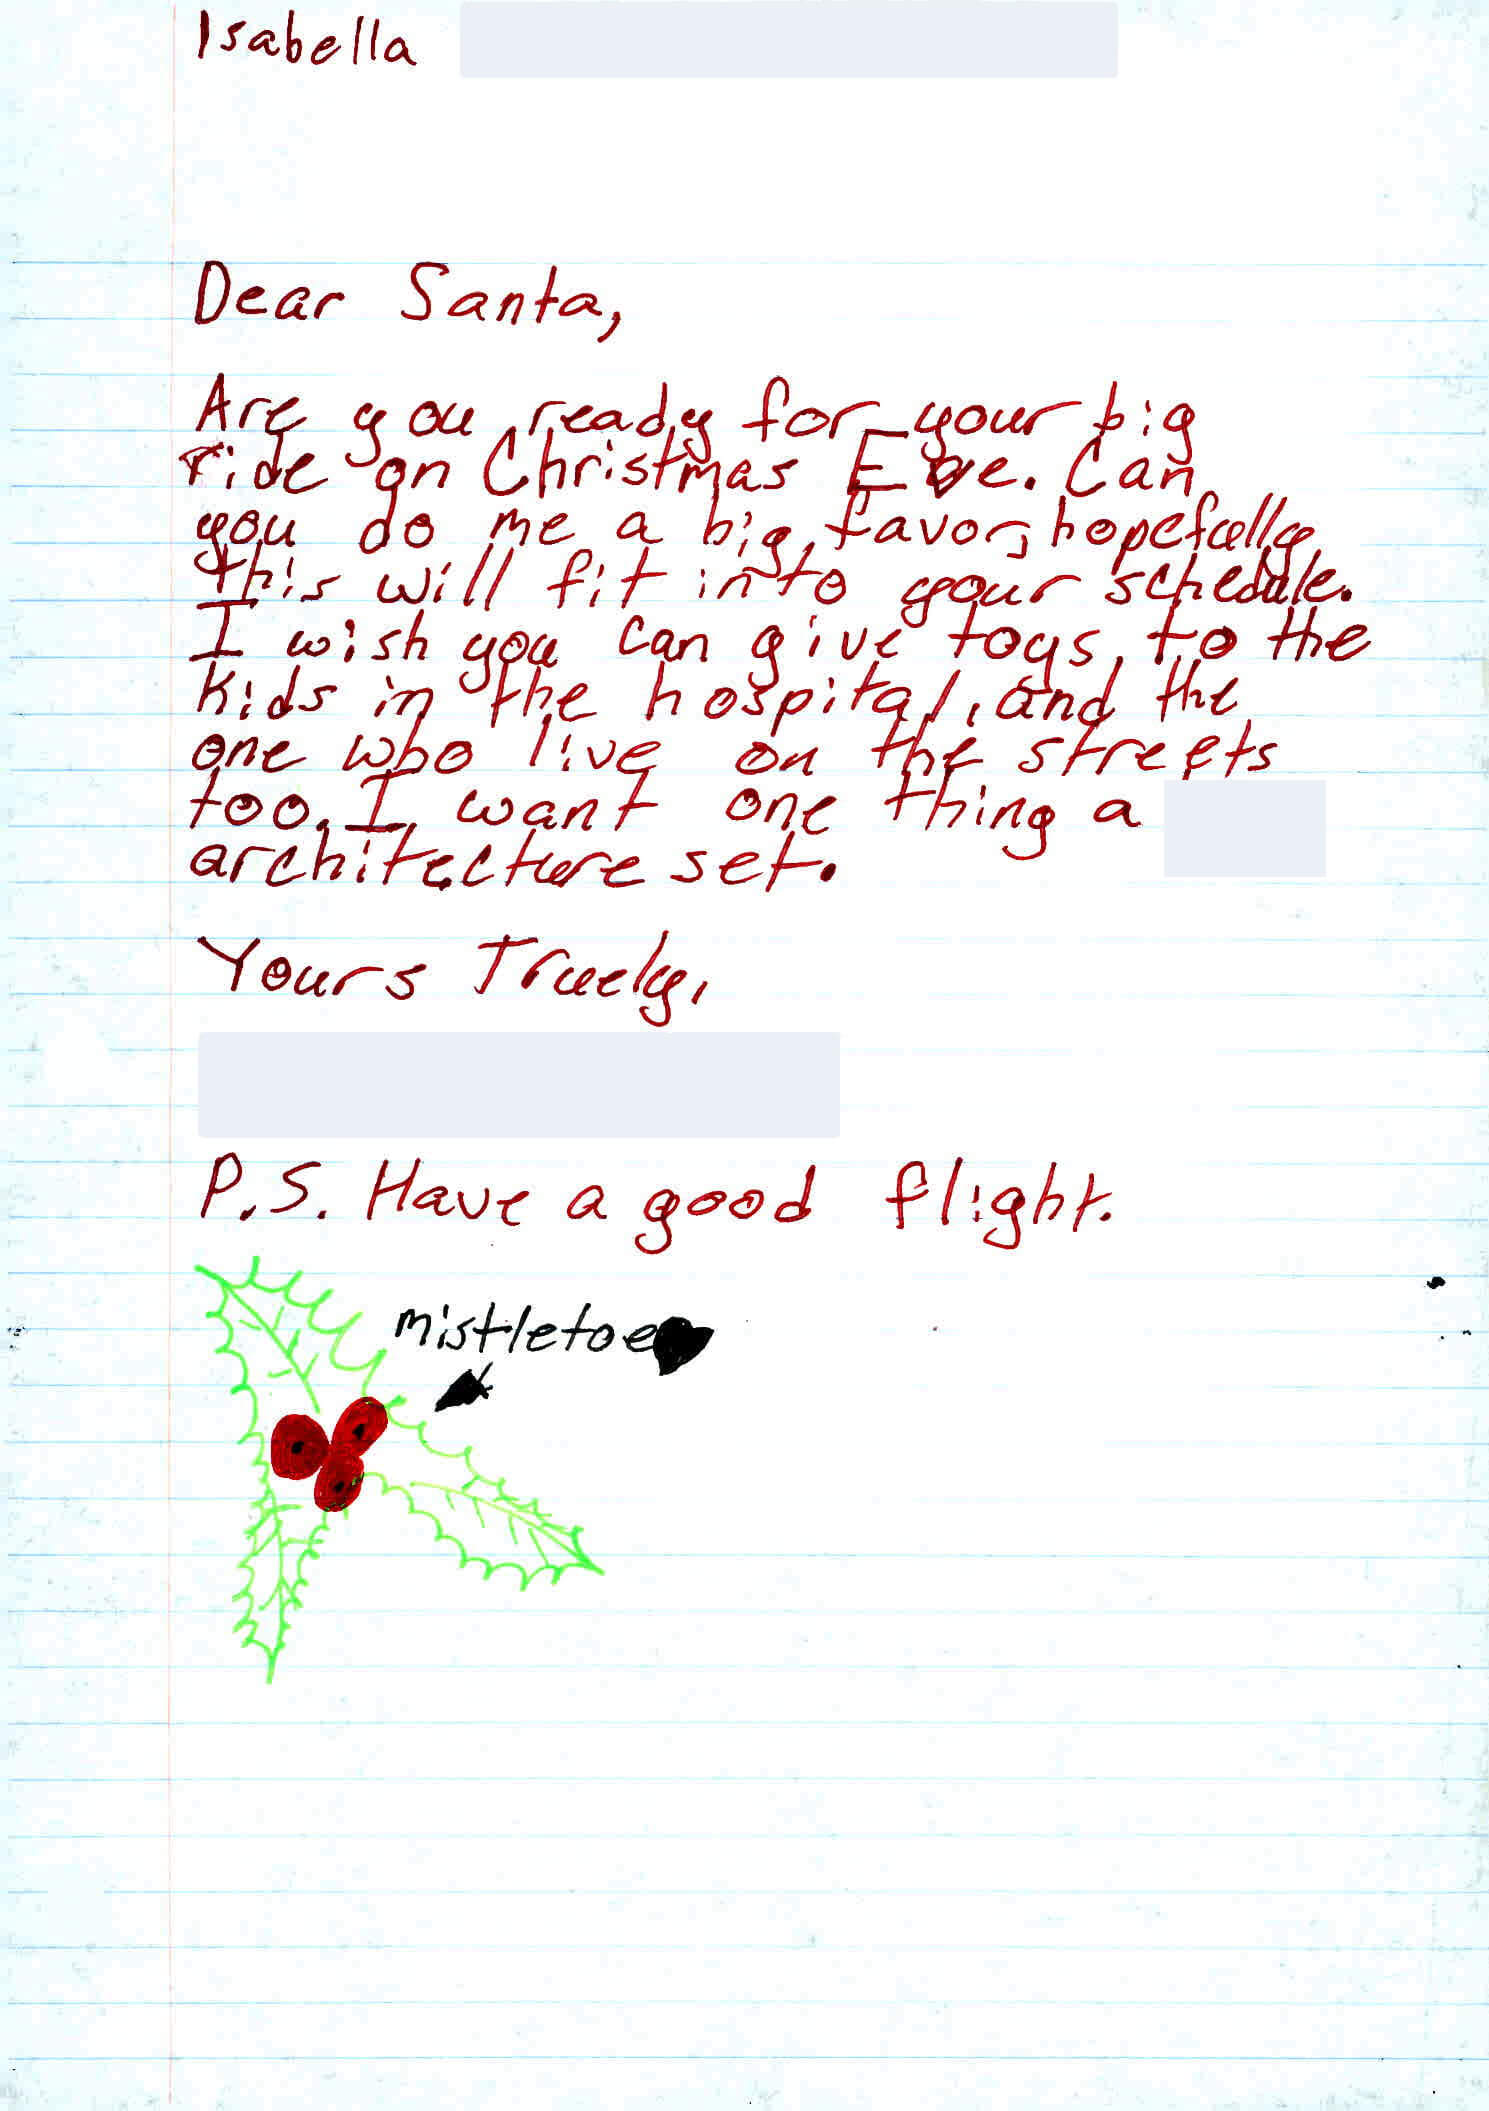 Isabella
Dear Santa,
Are you ready for your big
ride on Christmas Eve. Can
you do me a big favor, hopefully
this will fit into your schedule.
I wish you can give toys, to the
kids in the hospital, and the
one who live on the streets
too. I want one thing a
architecture set.
Yours Truely,
P.S. Have a good flight.
mistletoe